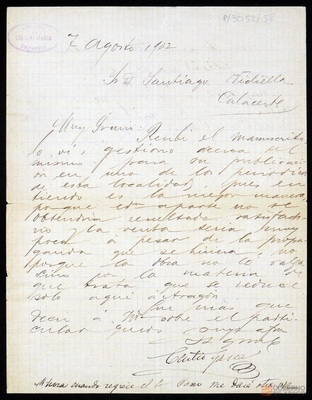 7 Agosto 1902
Sr D Santiago Vidiella
Calaceite
Muy Sr mio: Recibi el manuscrito
lo vi, gestiono acerca del
mismo para su publicacion
en uno de los periodicos
de esta localidad, pues en
tiendo es la mejor manera
porque aparte no se
obtendria resultado satisfacto
rio y la venta seria muy
poca á pesar de la propa
ganda que se hiciera, no
porque la obra no lo valga
sino por la materia de
que trata que se reduce
solo aqui á Aragón
Sin mas que
decir á Vd sobre el parti
cular quedo suyo affmo
Ahora cuando regrese el Sr